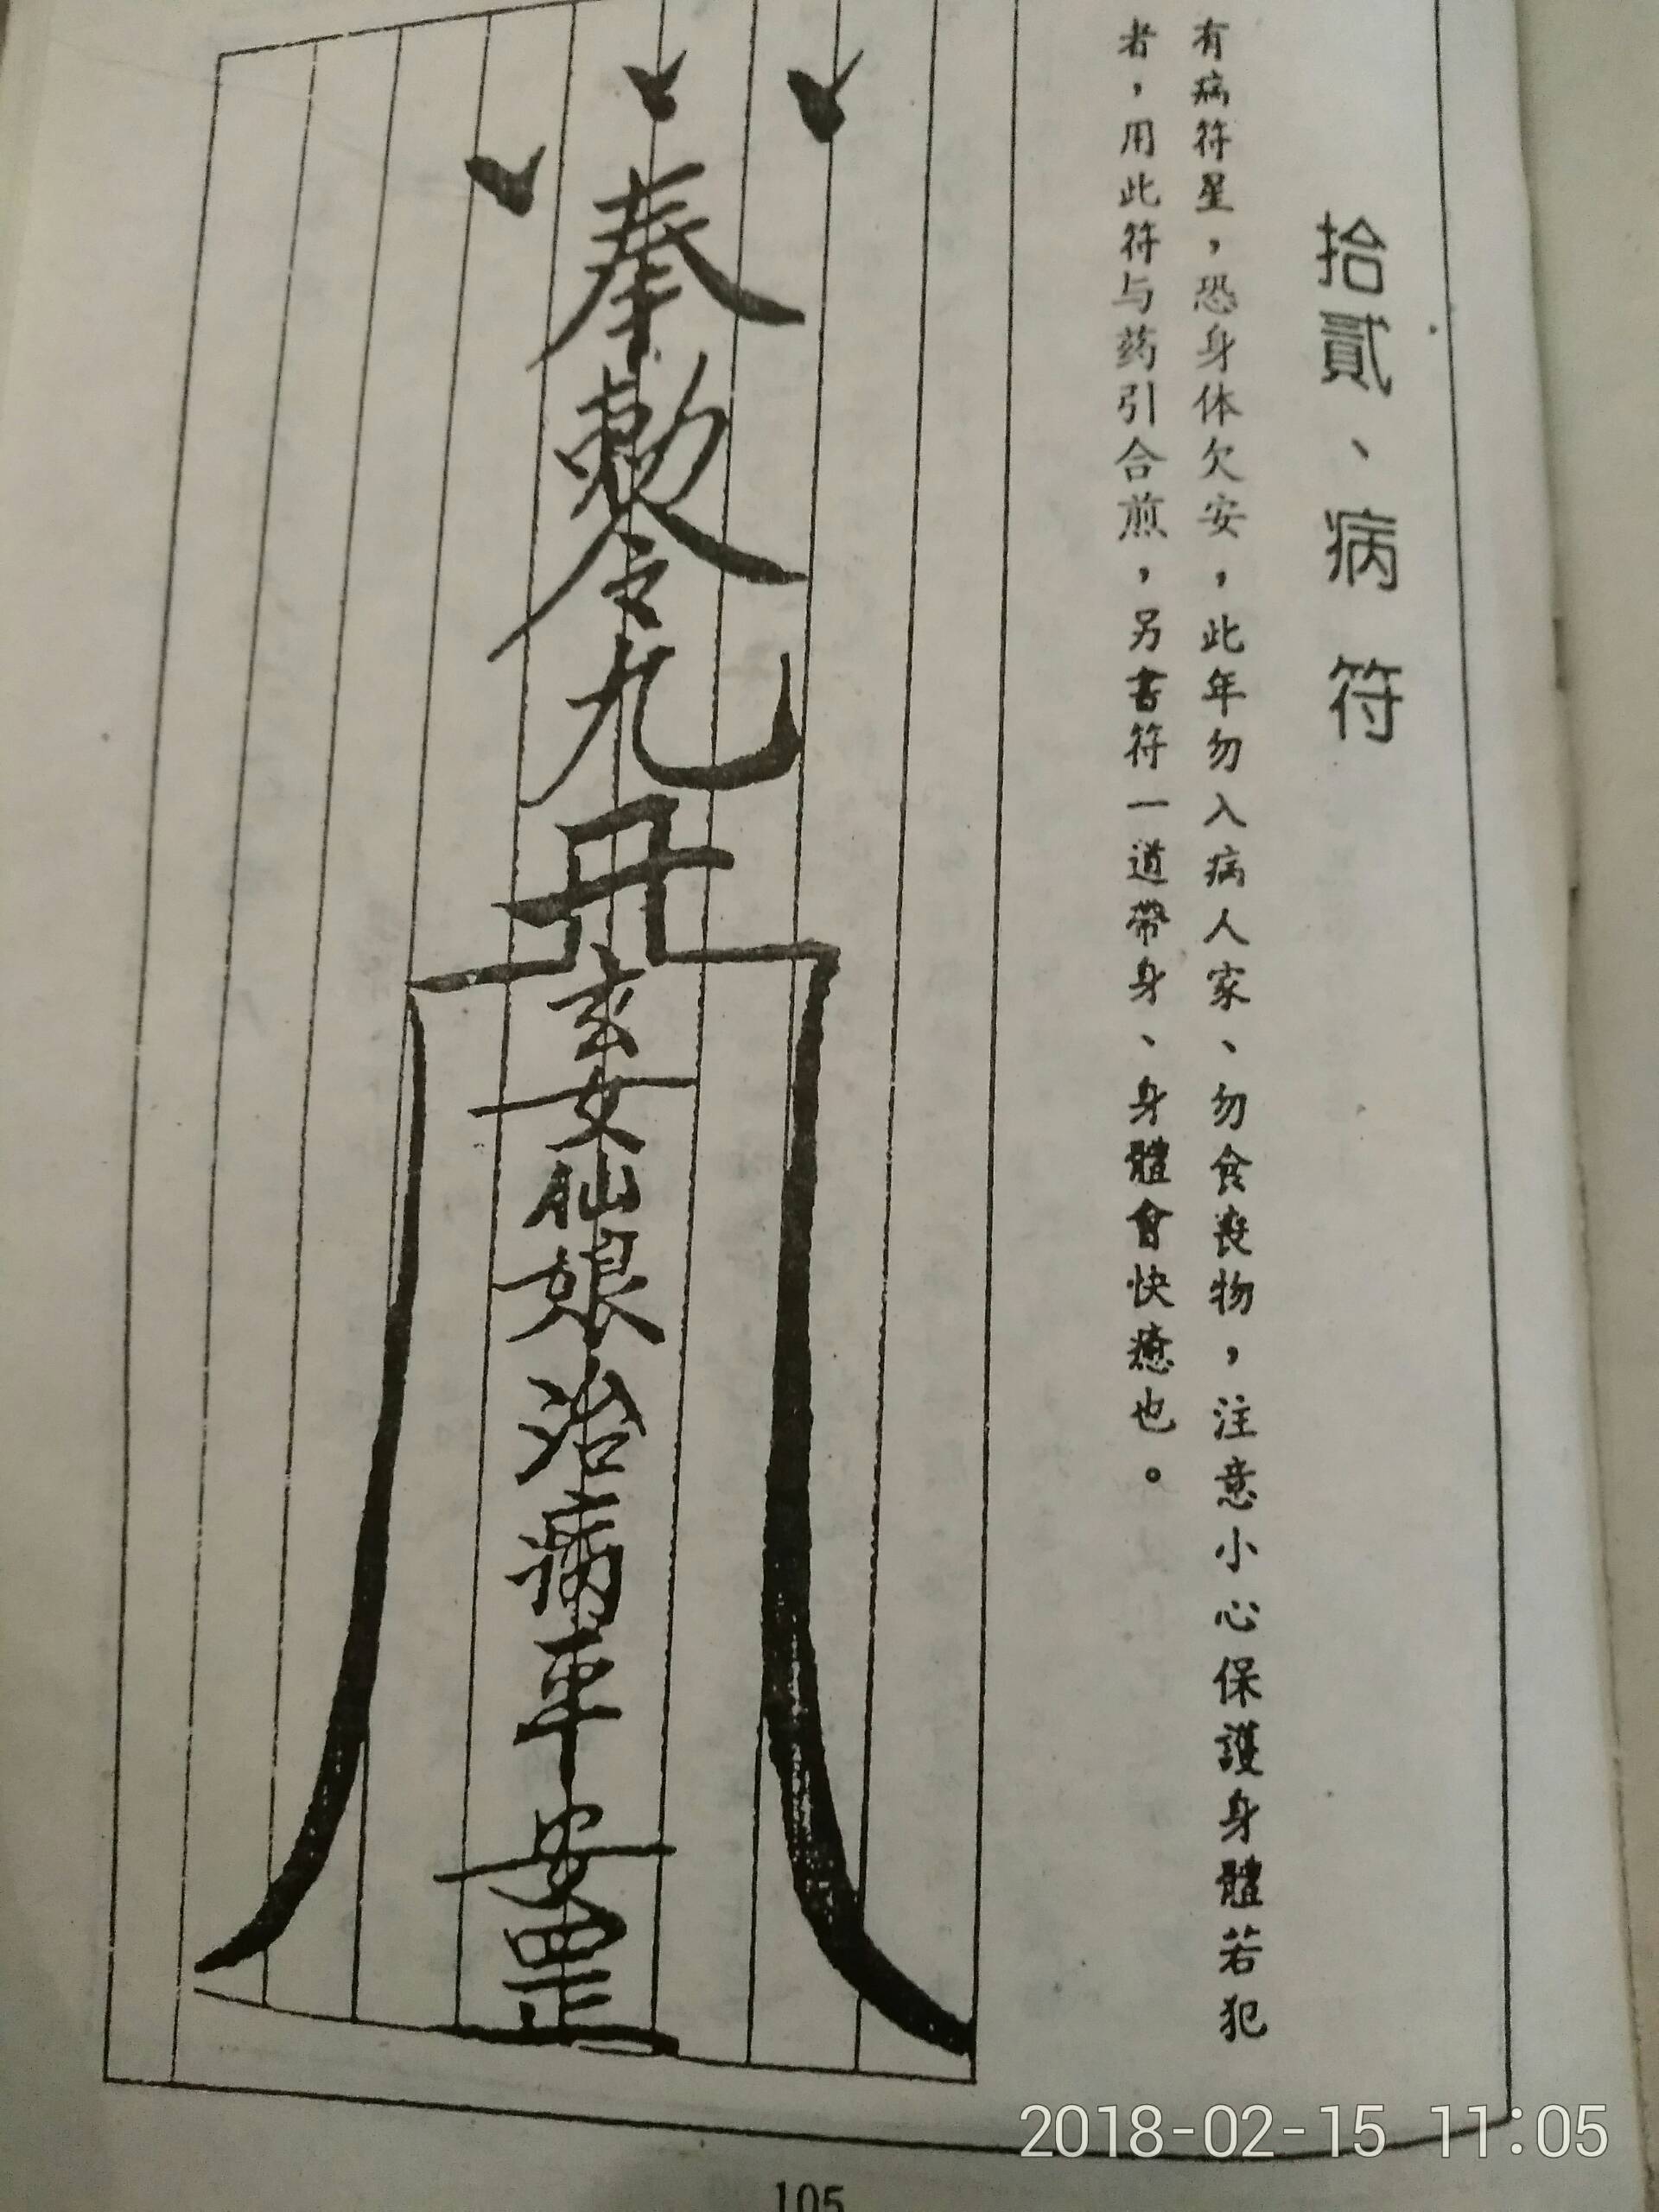 拾貳、病符
有病符星，恐身体欠安，此年勿入病人家、勿食喪物，注意小心保護身體若犯
者，用此符与药引合煎，另書符一道帶身、身體會快癒也。
奉勅令九天玄女仙娘治病平安罡
2018-02-15 11:05
105